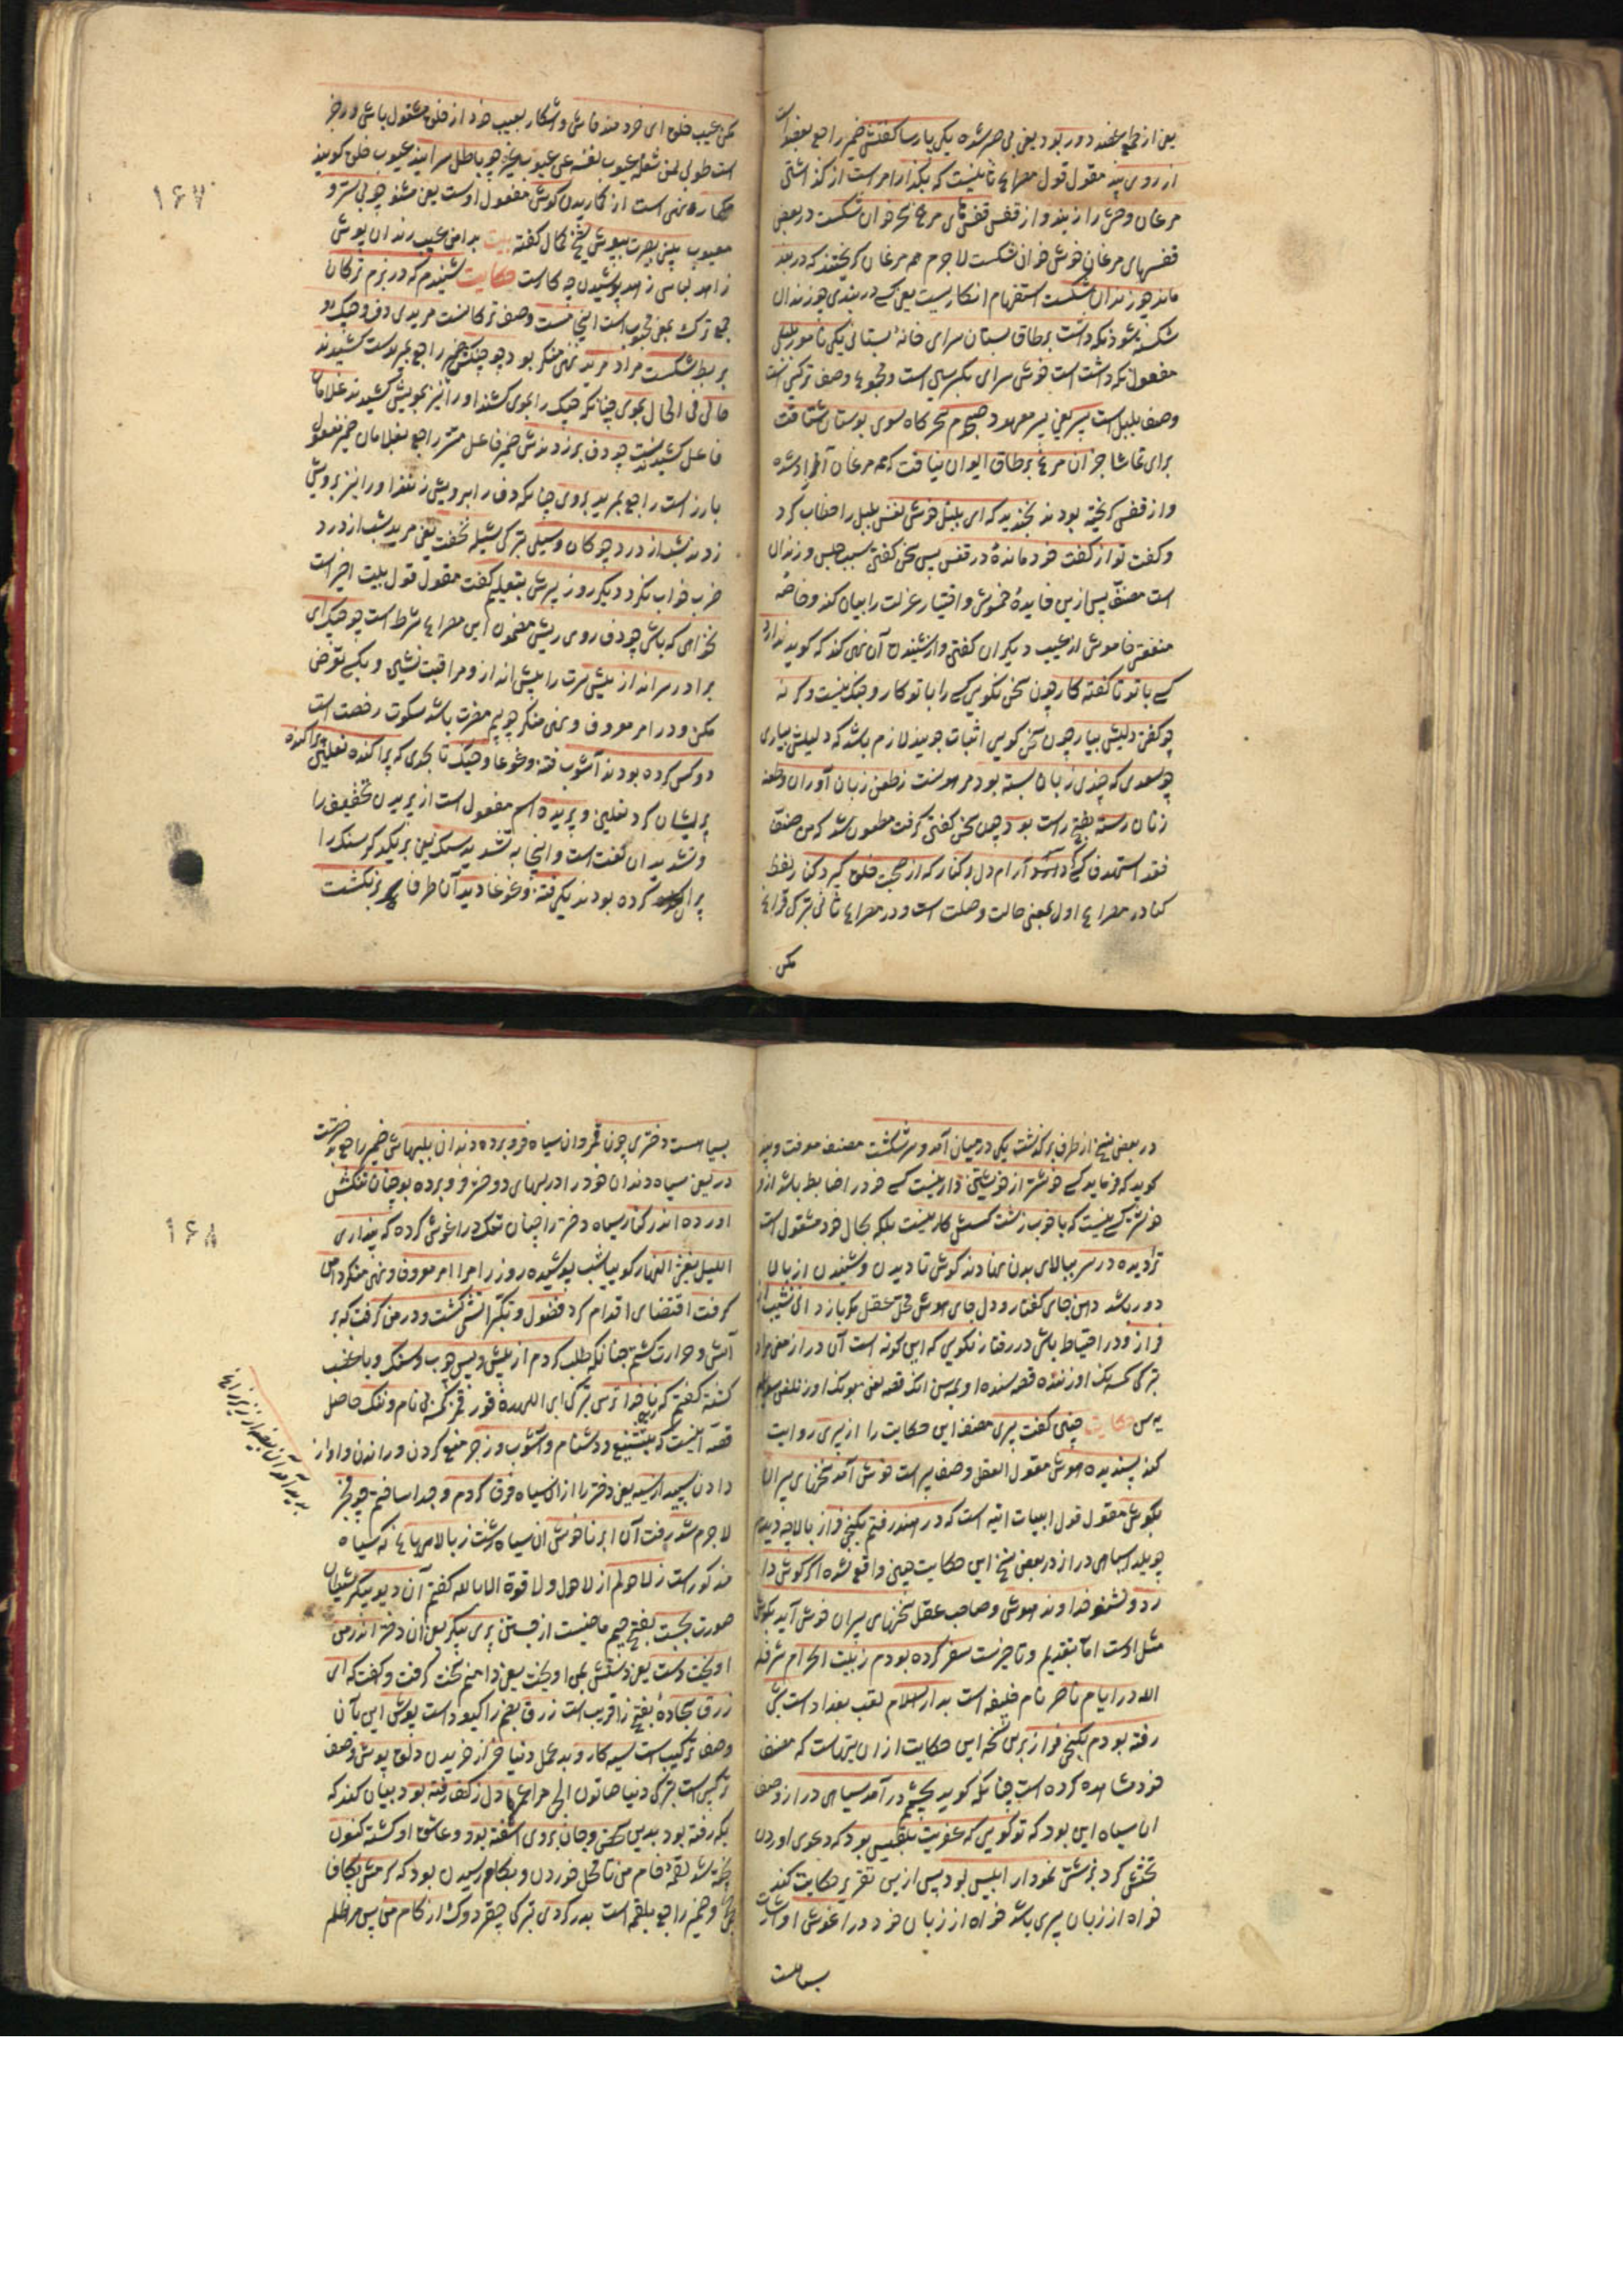 یعنی از طبع عضد دور بود یعنی بی صبر شده یکی پارسا گفتش ضمیر راجع بعضد است
از روی پند مقول قول مصراع ثانیست که بگذار امر است از گذاشتن
مرغان وحش را ز بند و از قفس قفسهای مرغ سحر خوان شکست در بعضی
قفسهای مرغان خوش خوان شکست لاجرم همه مرغان گریختند که در بند
ماند چو زندان شکست استفهام انکاریست یعنی کسی در بندی چو زندان
شکسته شود نگه داشت بر طاق بستان سرای خانه بستانی یکی نامور بلبلی
مفعول نگه داشت است خوش سرای بکسر سین است و مجموع وصف ترکیبی است
وصف بلبل است پسر یعنی پسر معهود صبحدم سحرگاه سوی بوستان شتافت
برای تماشا جز آن مرغ بر طاق ایوان نیافت که همه مرغان آزاد شده
و از قفس گریخته بودند بخندید که ای بلبل خوش نفس بلبل را خطاب کرد
و گفت تو از گفت خود مانده در قفس پس سخن گفتن سبب حبس و زندان
است مصنف پس ازین فایده خموشی و اختیار عزلت را بیان کند و خاصه
منفعت خاموش از عیب دیگران گفتن و از شنیدن آن نهی کند که گوید ندارد
کسی با تو ناگفته کار چون سخن نگویی کسی را با تو کار و جنگ نیست و گر نه
چو گفتی دلیلش بیار چون سخن گویی اثبات جویند لازم باشد که دلیلش بیاری
چو سعدی که چندی زبان بسته بود مر او ست ز طعن زبان آوران و طعنه
زنان رسته بفتح راست بود چون سخن گفتن گرفت مطعون شد که من صنف
فقد استهدف کسی آرام دل در کنار که از صحبت خلق گیرد کنار لفظ
کنار در مصراع اول بمعنی حالت وصلت است و در مصراع ثانی بترکی قراغ
مکن
مکن عیب خلق ای خردمند فاش و آشکار بعیب خود از خلق مشغول باش و در خبر
است طوبی لمن شغله عیوب نفسه عن عیوب غیره چو باطل سرایند عیوب خلق گویند
مگمار نهی است از گماریدن گوش مفعول اوست یعنی مشنو چو بی ستر و
معیوب بینی بصیرت بپوش شیخ کمال گفته بیت بدامن عیب رندان پوش
زاهد لباس زاهد پوشیدن چه کار است حکایت شنیدم که در بزم ترکان
جمع ترک بمعنی محبوب است اینجا مست وصف ترکانست مریدی دف و چنگ و
بربط شکست مراد مرید نهی منکر بود چو چنگش ضمیر راجع بمریدست کشیدند
حالی فی الحال بموی چنانکه چنگ را بموی کشند او را نیز بمویش کشیدند غلامان
فاعل کشیدندست چو دف بر زدندش ضمیر فاعل مستتر راجع بغلامان ضمیر مفعول
بارز است راجع بمرید بروی چنانکه دف را بر رویش زنند او را نیز بر رویش
زدند شب از درد چوگان و سیلی بترکی شیله نخفت یعنی مرید شب از درد
ضرب خواب نکرد دیگر روز پیرش بتعلیم گفت مقول قول بیت اخیر است
نخواهی که باشی چو دف روی ریش مضمون این مصراع شرط است چو چنگ ای
برادر سر انداز پیش سرت را پیش انداز و مراقبت نشین و بکسی تعرض
مکن و در امر معروف و نهی منکر چو بیم مضرت باشد سکوت رخصت است
دو کس گرد بودند آشوب فتنه و غوغا و جنگ تا بحدی که پراکنده نعلین پراکنده
پریشان کرد نعلین و پریده اسم مفعول است از پریدن تخفیف را
و تشدید آن لغت است و اینجا به تشدید سنگ یعنی بر یکدیگر سنگ را
پران کرده بودند یکی فتنه و غوغا دید آن طرف بر شکست
۱۶۷
در بعضی نسخ از طرف برگذشت یکی در میان آمد و سر شکست مصنف معرفت و پند
گوید که فرماید کسی خوشتر از خویشتن دار نیست کسی خود را ضابط باشد ازو
خوشتر کسی نیست که با خوب و زشت کسش کار نیست بلکه بحال خود مشغول است
ترا دیده در سر ببالای بدن نهادند گوش تا دیدن و شنیدن از بالا
دور باشد دهن جای گفتار و دل جای هوش محل عقل مگر باز دانی نشیب از
فراز و در احتیاط باشی در رفتار نگویی که این کوته است آن دراز معنی مراد
حکایت چنین گفت پیری مصنف این حکایت را از پیری روایت
کند پسندیده هوش مقول العقل وصف پیر است خوش آمد سخنهای پیران
بگوش مقول قول ابیات اتیه است که در هند رفتم بکنجی فراز بالا چه دیدم
چو یلدا سیاهی دراز در بعضی نسخ این حکایت چنین واقع شده اگر گوش دا
رد و بشنو خداوند هوش و صاحب عقل سخنهای پیران خوش آید بگوش
مثل اوست اما بتقدیم و تاخیرست سفر کرده بودم ز بیت الحرام شرفه
الله در ایام ناصر نام خلیفه است بدار السلام لقب بغداد است شبی
رفته بودم بکنجی فراز برین نسخه این حکایت از ان بیتهاست که مصنف
خود مشاهده کرده است چنانکه گوید بچشمم در آمد سیاهی دراز وصف
ان سیاه این بود که تو گویی که عفریت بلقیس بود که دعوی اوردن
تختش کرد بزشتی نمودار ابلیس بود پس ازین تقریر حکایت کند
خواه از زبان پیری باشد خواه از زبان خود در اغوش او اشارت
بسیاهست
بسیاهست دختری چون قمر وان سیاه فرو برده دندان بلبهاش ضمیر راجع بدخترست
در یعنی سیاه دندان خود را در لبهای دختر فرو برده بود چنان تنگش
اورده اندر کنار سیاه دختر را چنان تنگ در اغوش کرده که پنداری
اللیل یغشی النهار گویا شب پوشیده روز را مرا امر معروف و نهی منکر دامن
گرفت اقتضای اقدام کرد فضول و تکبر آتشی گشت و در من گرفت که پر
آتش و حرارت گشتم چنانکه طلب کردم از پیش و پس چوب و سنگ و با غضب
گشته گفتم که ای ناخدا ترس بی نام و ننگ حاصل
قصه اینست که بتشنیع و دشنام و آشوب و زجر منع کردن و راندن و اواز
دادن سپید از سیه یعنی دختر را از ان سیاه فرق کردم و جدا ساختم چو فجر
لاجرم شد برفت آن ابر ناخوش ان سیاه زشت ز بالای باغ که سیاه
مذکور است ز لاحولم از لاحول و لا قوة الا بالله گفتم آن دیو پیکر شیطان
صورت بجست بفتح جیم ماضیست از جستن پری پیکر یعنی ان دختر اندر من
اویخت دست یعنی دستش بمن اویخت یعنی دامنم سخت گرفت و گفت که ای
زرق سجاده بفتح زا فریب است زرق بضم زا کبود است پوش این با آن
وصف ترکیب است سیه کار و بد عمل دنیا خر از خریدن دلق پوش وصف
ترکیبی است بترکی دنیا صاتون الجی مرا عمرها دل ز کف رفته بود بیان کند که
بکه رفته بود بدین شخص و جان بر وی اشفته بود و عاشق او گشته کنون
پخته شد لقمه خام من تا محل خوردن و بکام رسیدن بود که گرمش بکاف
عجمی و ضمیر راجع بلقمه است بدر کردی بترکی چقردوک از کام من پس مرا ظلم
۱۶۸